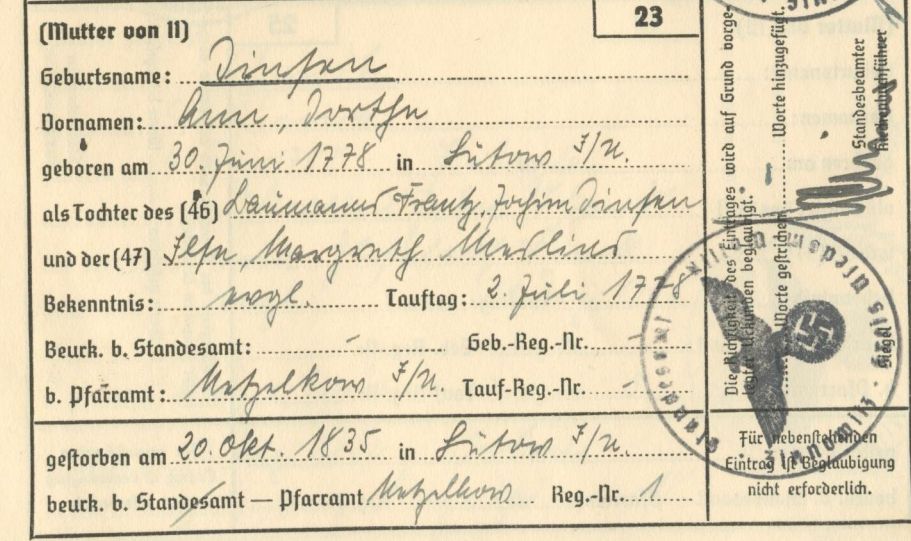 23
(Mutter von 11)
Geburtsname: Dinsen
Vornamen: Ann, Dorthe
geboren am 30. Juni 1778 in Lütow /U.
als Tochter des (46) Baumanns Frantz, Jochim Dinsen
und der (47) Ilse, Margreth
Bekenntnis: evgl. Tauftag: 2. Juli 1778
Beurk. b. Standesamt: - Geb.-Reg.-Nr.
b. Pfarramt: Netzelkow /U. Tauf-Reg.-Nr. -
gestorben am 20. Okt. 1835 in Lütow /U.
beurk. b. Standesamt — Pfarramt Netzelkow Reg.-Nr. 1
Die Richtigkeit des Eintrages wird auf Grund vorge-
legter Urkunden beglaubigt.
Worte gestrichen Worte hinzugefügt.
Standesbeamter
Kirchenbuchführer
Siegel
Für nebenstehenden
Eintrag ist Beglaubigung
nicht erforderlich.